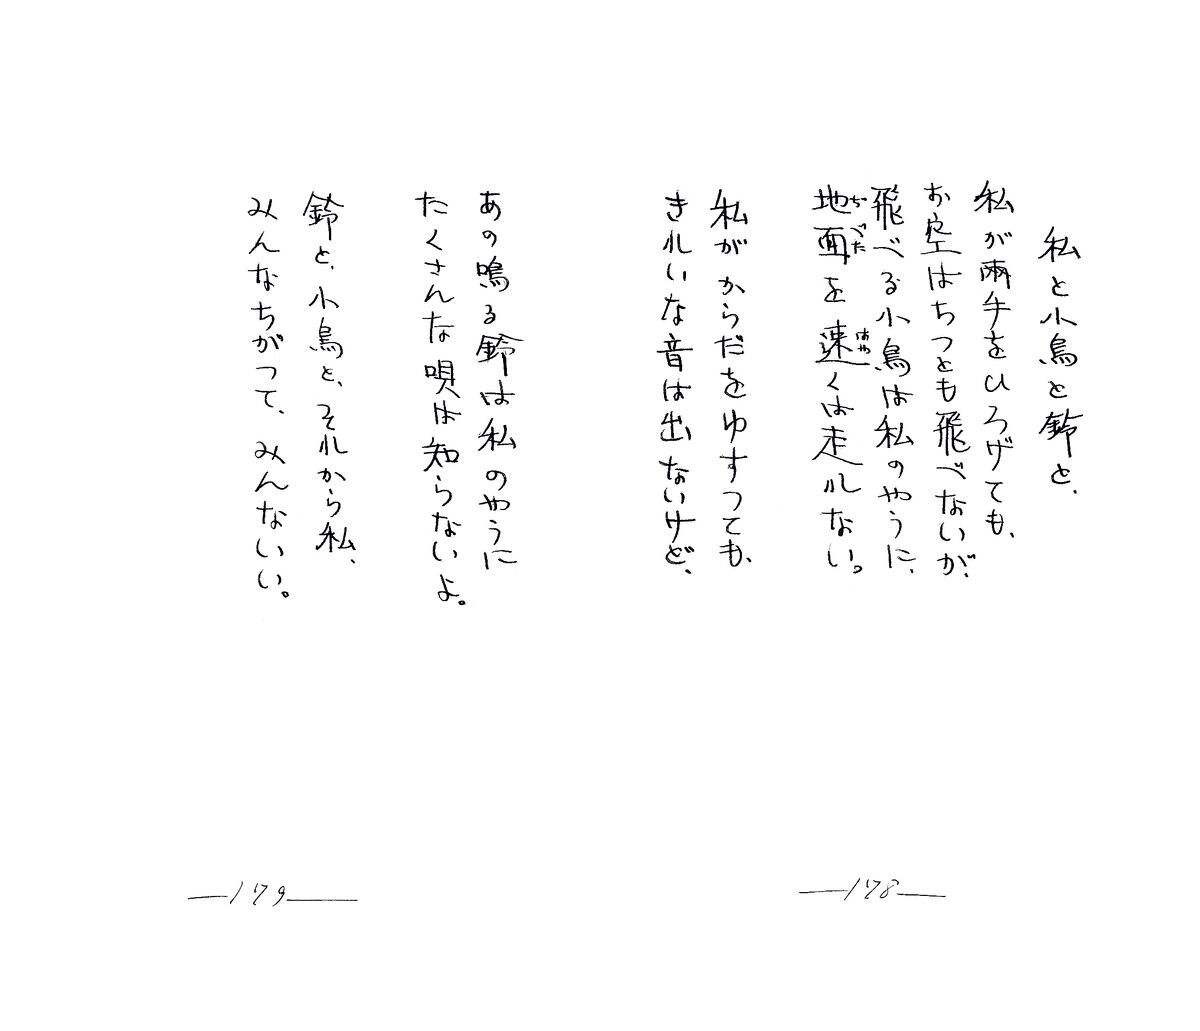 私と小鳥と鈴と、
私が兩手をひろげても、
お空はちつとも飛べないが、
飛べる小鳥は私のやうに、
地面を速くは走れない。
ぢべた
はや
私がからだをゆすつても、
きれいな音は出ないけど、
—178—
あの鳴る鈴は私のやうに
たくさんな唄は知らないよ。
鈴と、小鳥と、それから私、
みんなちがつて、みんないい。
—179—